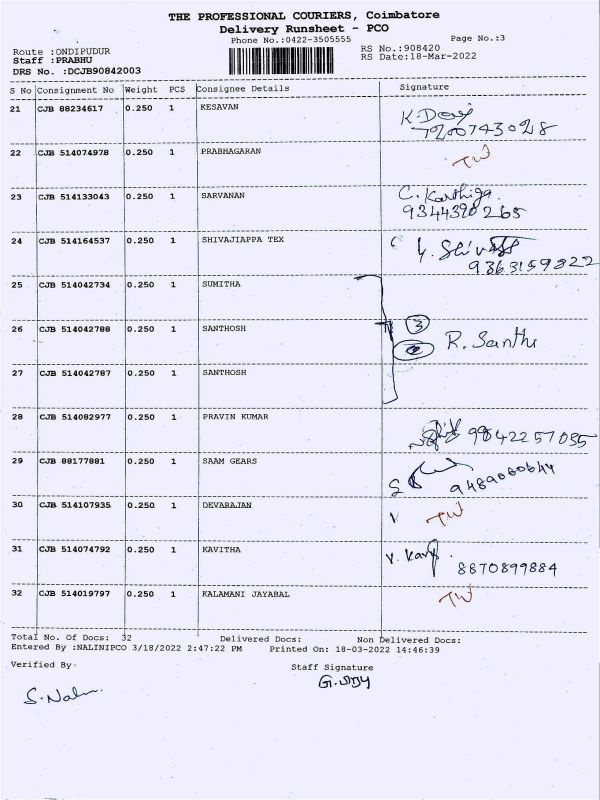 THE PROFESSIONAL COURIERS, Coimbatore
Delivery Runsheet - PCO
Phone No.:0422-3505555
Page No.:3
Route :ONDIPUDUR
Staff :PRABHU
DRS No. :DCJB90842003
RS No.:908420
RS Date:18-Mar-2022
S No Consignment No Weight PCS Consignee Details Signature
21 CJB 88234617 0.250 1 KESAVAN K. Devi
7200743028
22 CJB 514074978 0.250 1 PRABHAGARAN TW
23 CJB 514133043 0.250 1 SARVANAN C. Karthiga
9344390265
24 CJB 514164537 0.250 1 SHIVAJIAPPA TEX
9363159822
25 CJB 514042734 0.250 1 SUMITHA
26 CJB 514042788 0.250 1 SANTHOSH 3 R. Santhi
27 CJB 514042787 0.250 1 SANTHOSH
28 CJB 514082977 0.250 1 PRAVIN KUMAR 9842257055
29 CJB 88177881 0.250 1 SAAM GEARS 9489060644
30 CJB 514107935 0.250 1 DEVARAJAN TW
31 CJB 514074792 0.250 1 KAVITHA V. Kavi
8870899884
32 CJB 514019797 0.250 1 KALAMANI JAYABAL TW
Total No. Of Docs: 32 Delivered Docs: Non Delivered Docs:
Entered By :NALINIPCO 3/18/2022 2:47:22 PM Printed On: 18-03-2022 14:46:39
Verified By
Staff Signature
S. Nalini